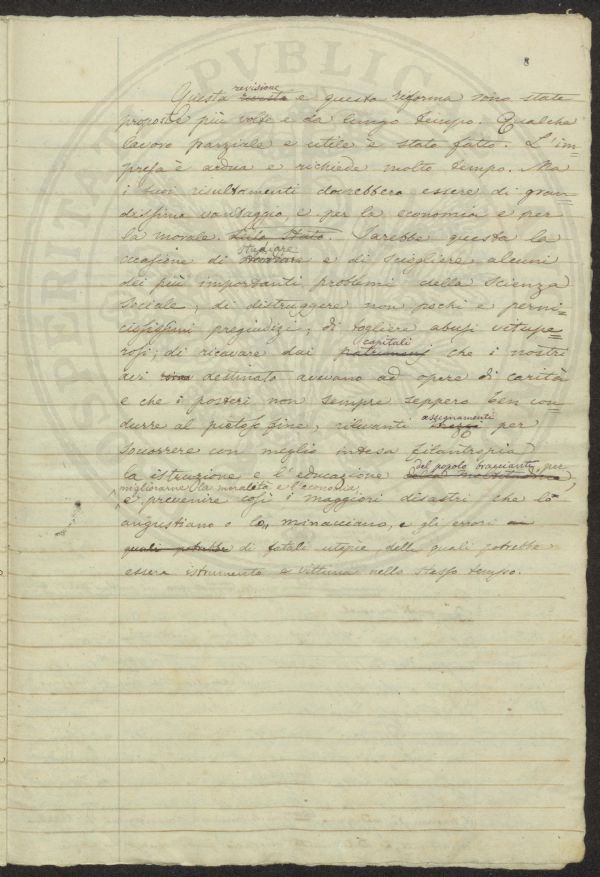 8
revisione
Questa rivista e questa riforma sono state
proposte più volte e da lungo tempo. Qualche
lavoro parziale e utile è stato fatto. L'im=
presa è ardua e richiede molto tempo. Ma
i suoi risultamenti dovrebbero essere di gran=
dissimo vantaggio, e per la economia e per
la morale. Stato. Sarebbe questa la
studiare
occasione di e di sciogliere alcuni
dei più importanti problemi della scienza
sociale, di distruggere non pochi e perni=
ciosissimi pregiudizi, di togliere abusi vitupe=
capitali
rosi; di ricavare dai patrimonj che i nostri
avi destinato avevano ad opere di carità
e che i posteri non sempre seppero ben con=
assegnamenti
durre al pietoso fine, rilevanti per
soccorrere con meglio intesa filantropia
del popolo bracciante, per
la istruzione e l'educazione della moltitudine,
migliorarne la moralità e l'economia,
e prevenire così i maggiori disastri che lo
angustiano o lo minacciano, e gli errori
quali potrebbe di fatali utopie delle quali potrebbe
essere istrumento e vittima nello stesso tempo.
PVBLIC